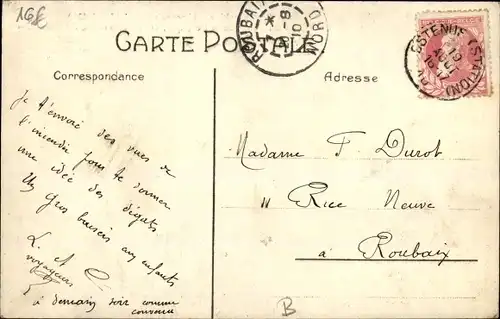 168
CARTE POSTALE
Correspondance
Adresse
ROUBAIX
NORD
ESTENUE (STATION)
10
Je t'envoie des vues de
l'incendie pour te donner
une idée des dégats
Un gros baisers aux enfants
L. et C
voyageurs
à demain soir comme
convenu
Madame F Durot
11 Rue Neuve
à Roubaix
B